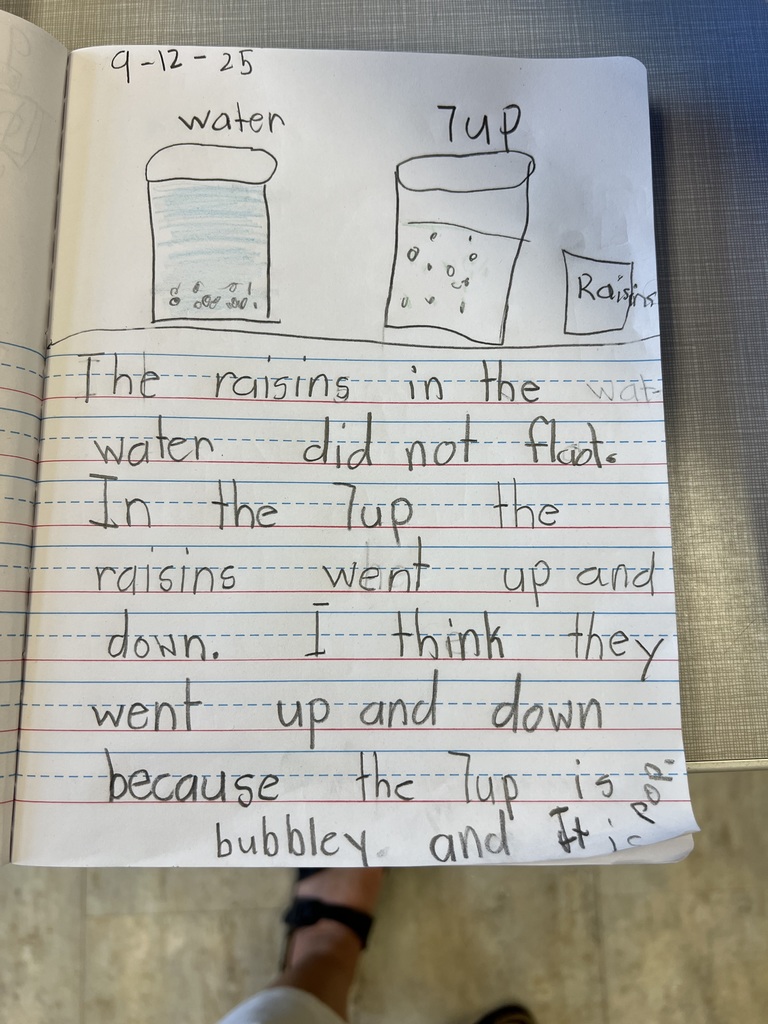 9-12-25
water
7up
Raisins
The raisins in the wat
water did not flaot.
In the 7up the
raisins went up and
down. I think they
went up and down
because the 7up is
bubbley. and It is
pop.